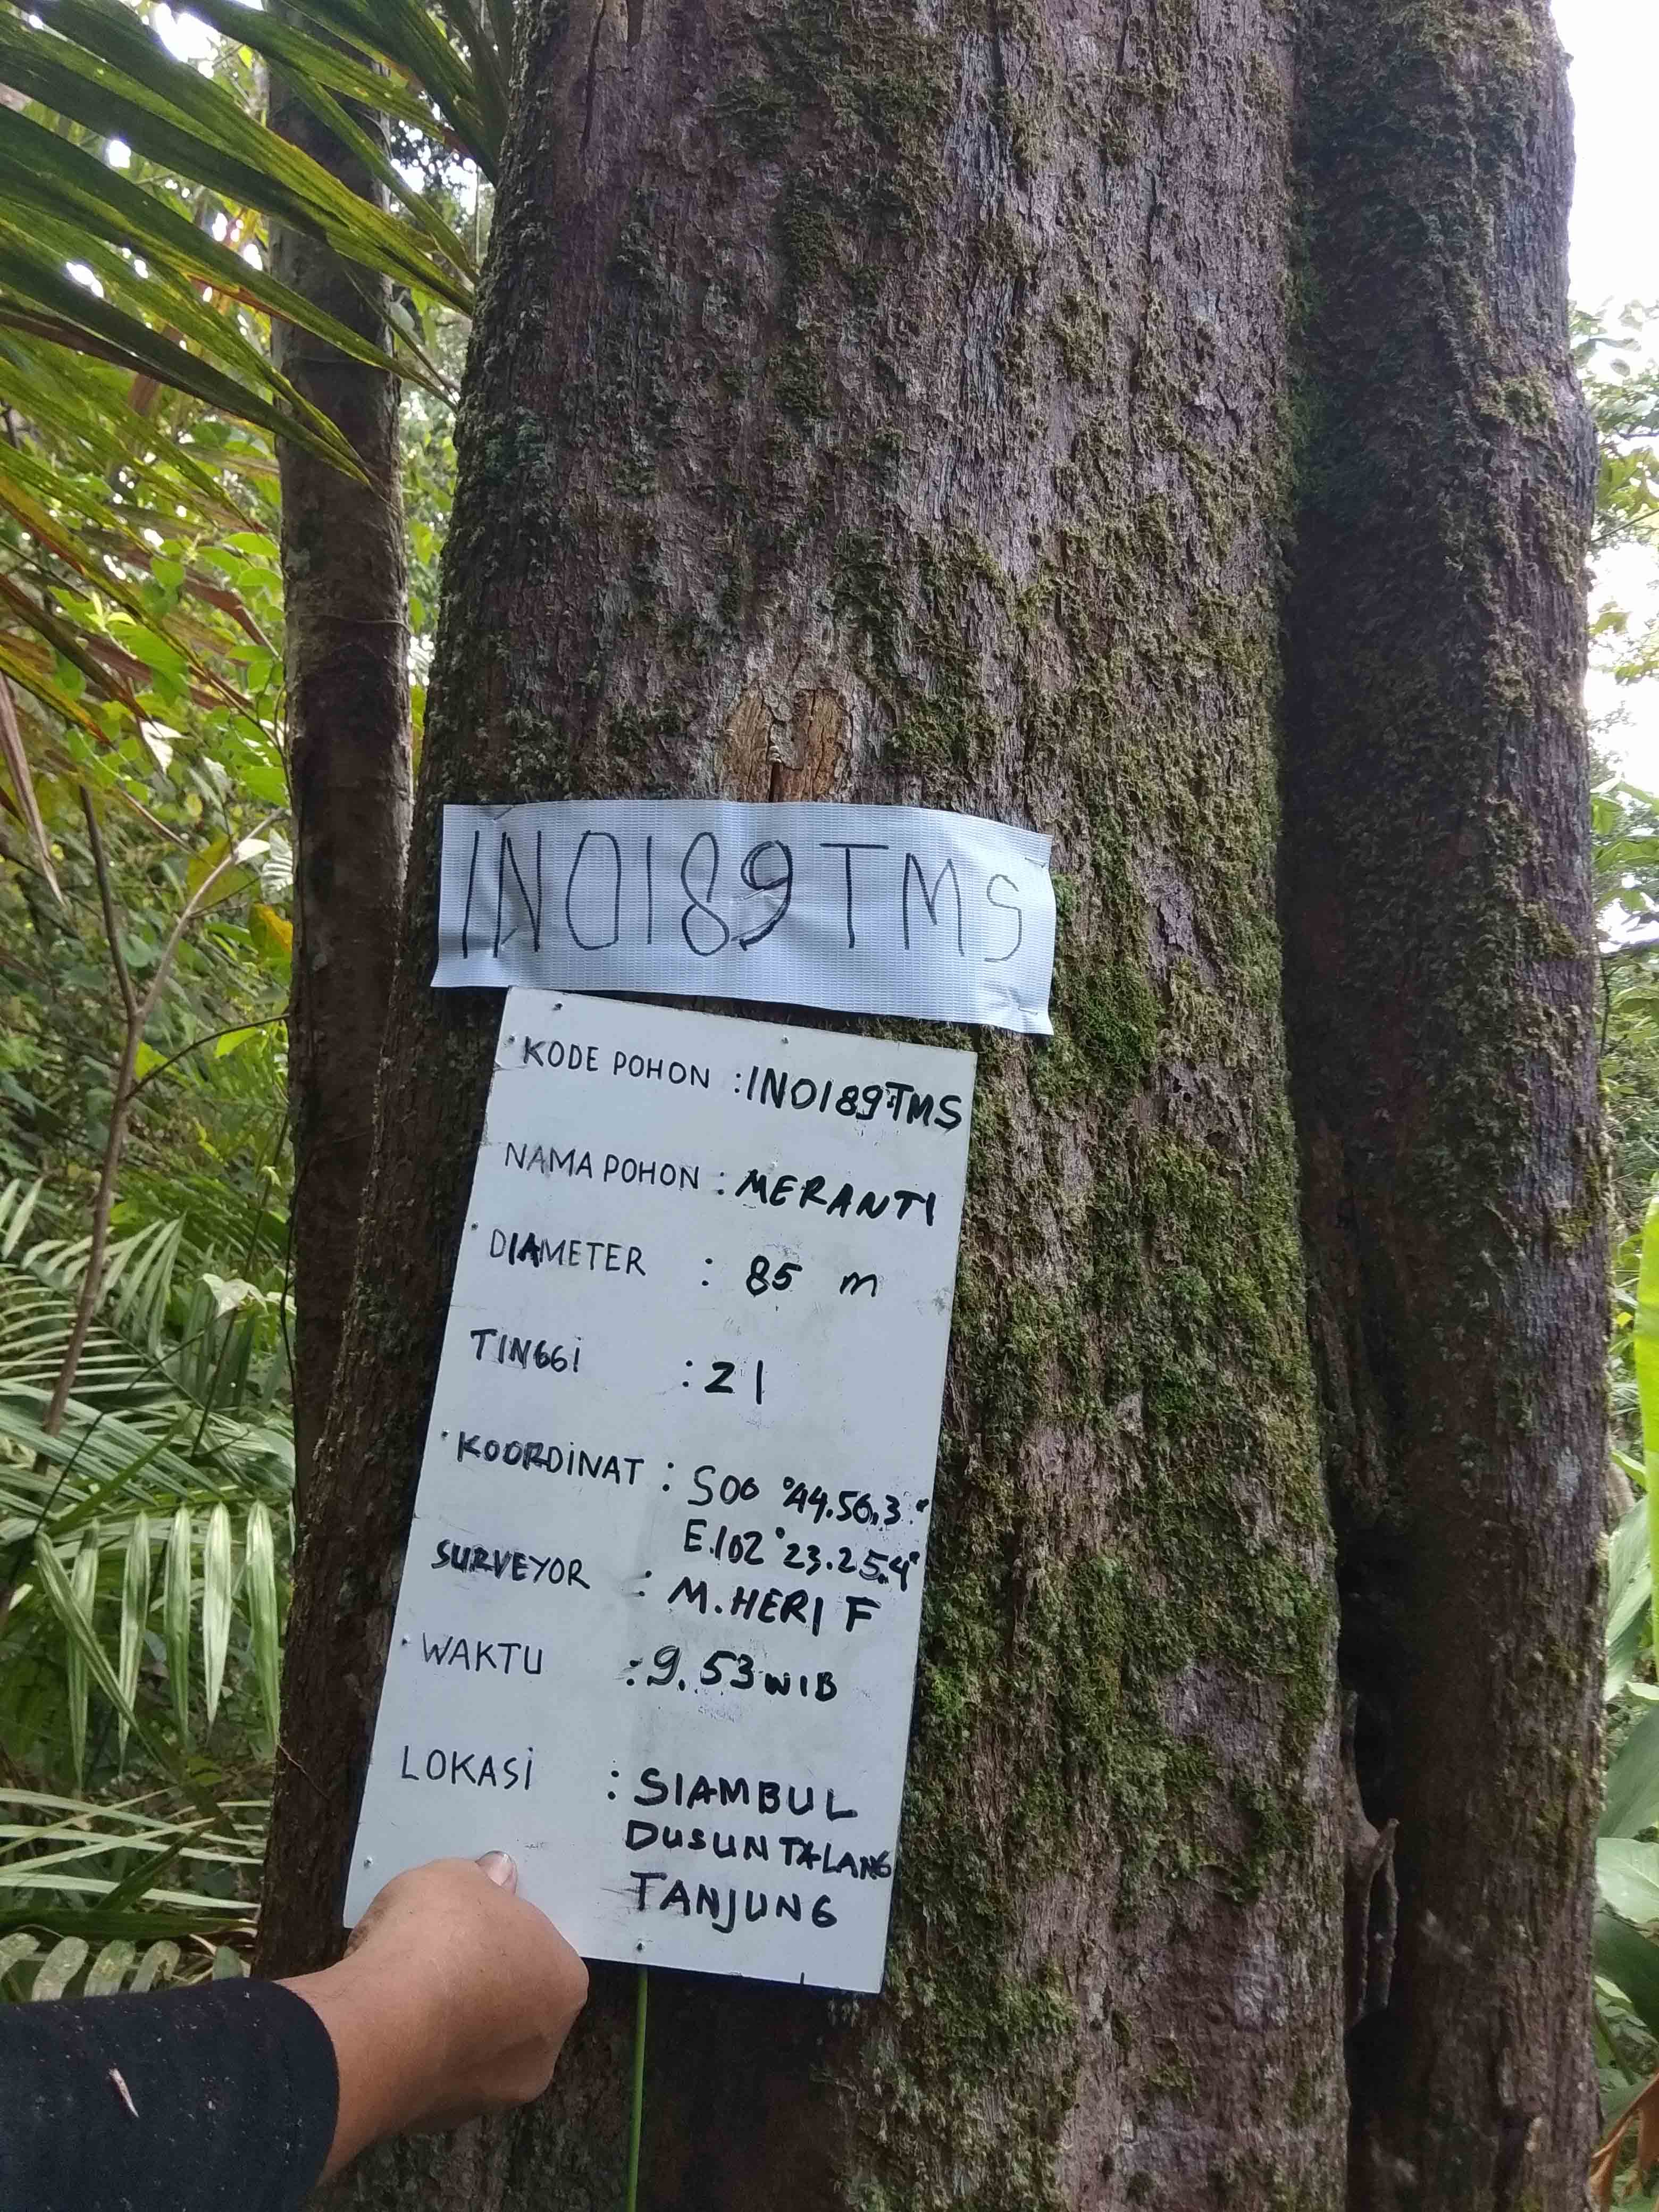 INO189TMS
KODE POHON : INO189TMS
NAMA POHON : MERANTI
DIAMETER : 85 m
TINGGI : 21
KOORDINAT : S00 °44.56.3"
E.102°23.25.4"
SURVEYOR : M.HERI F
WAKTU : 9.53 WIB
LOKASI : SIAMBUL
DUSUN TALANG
TANJUNG